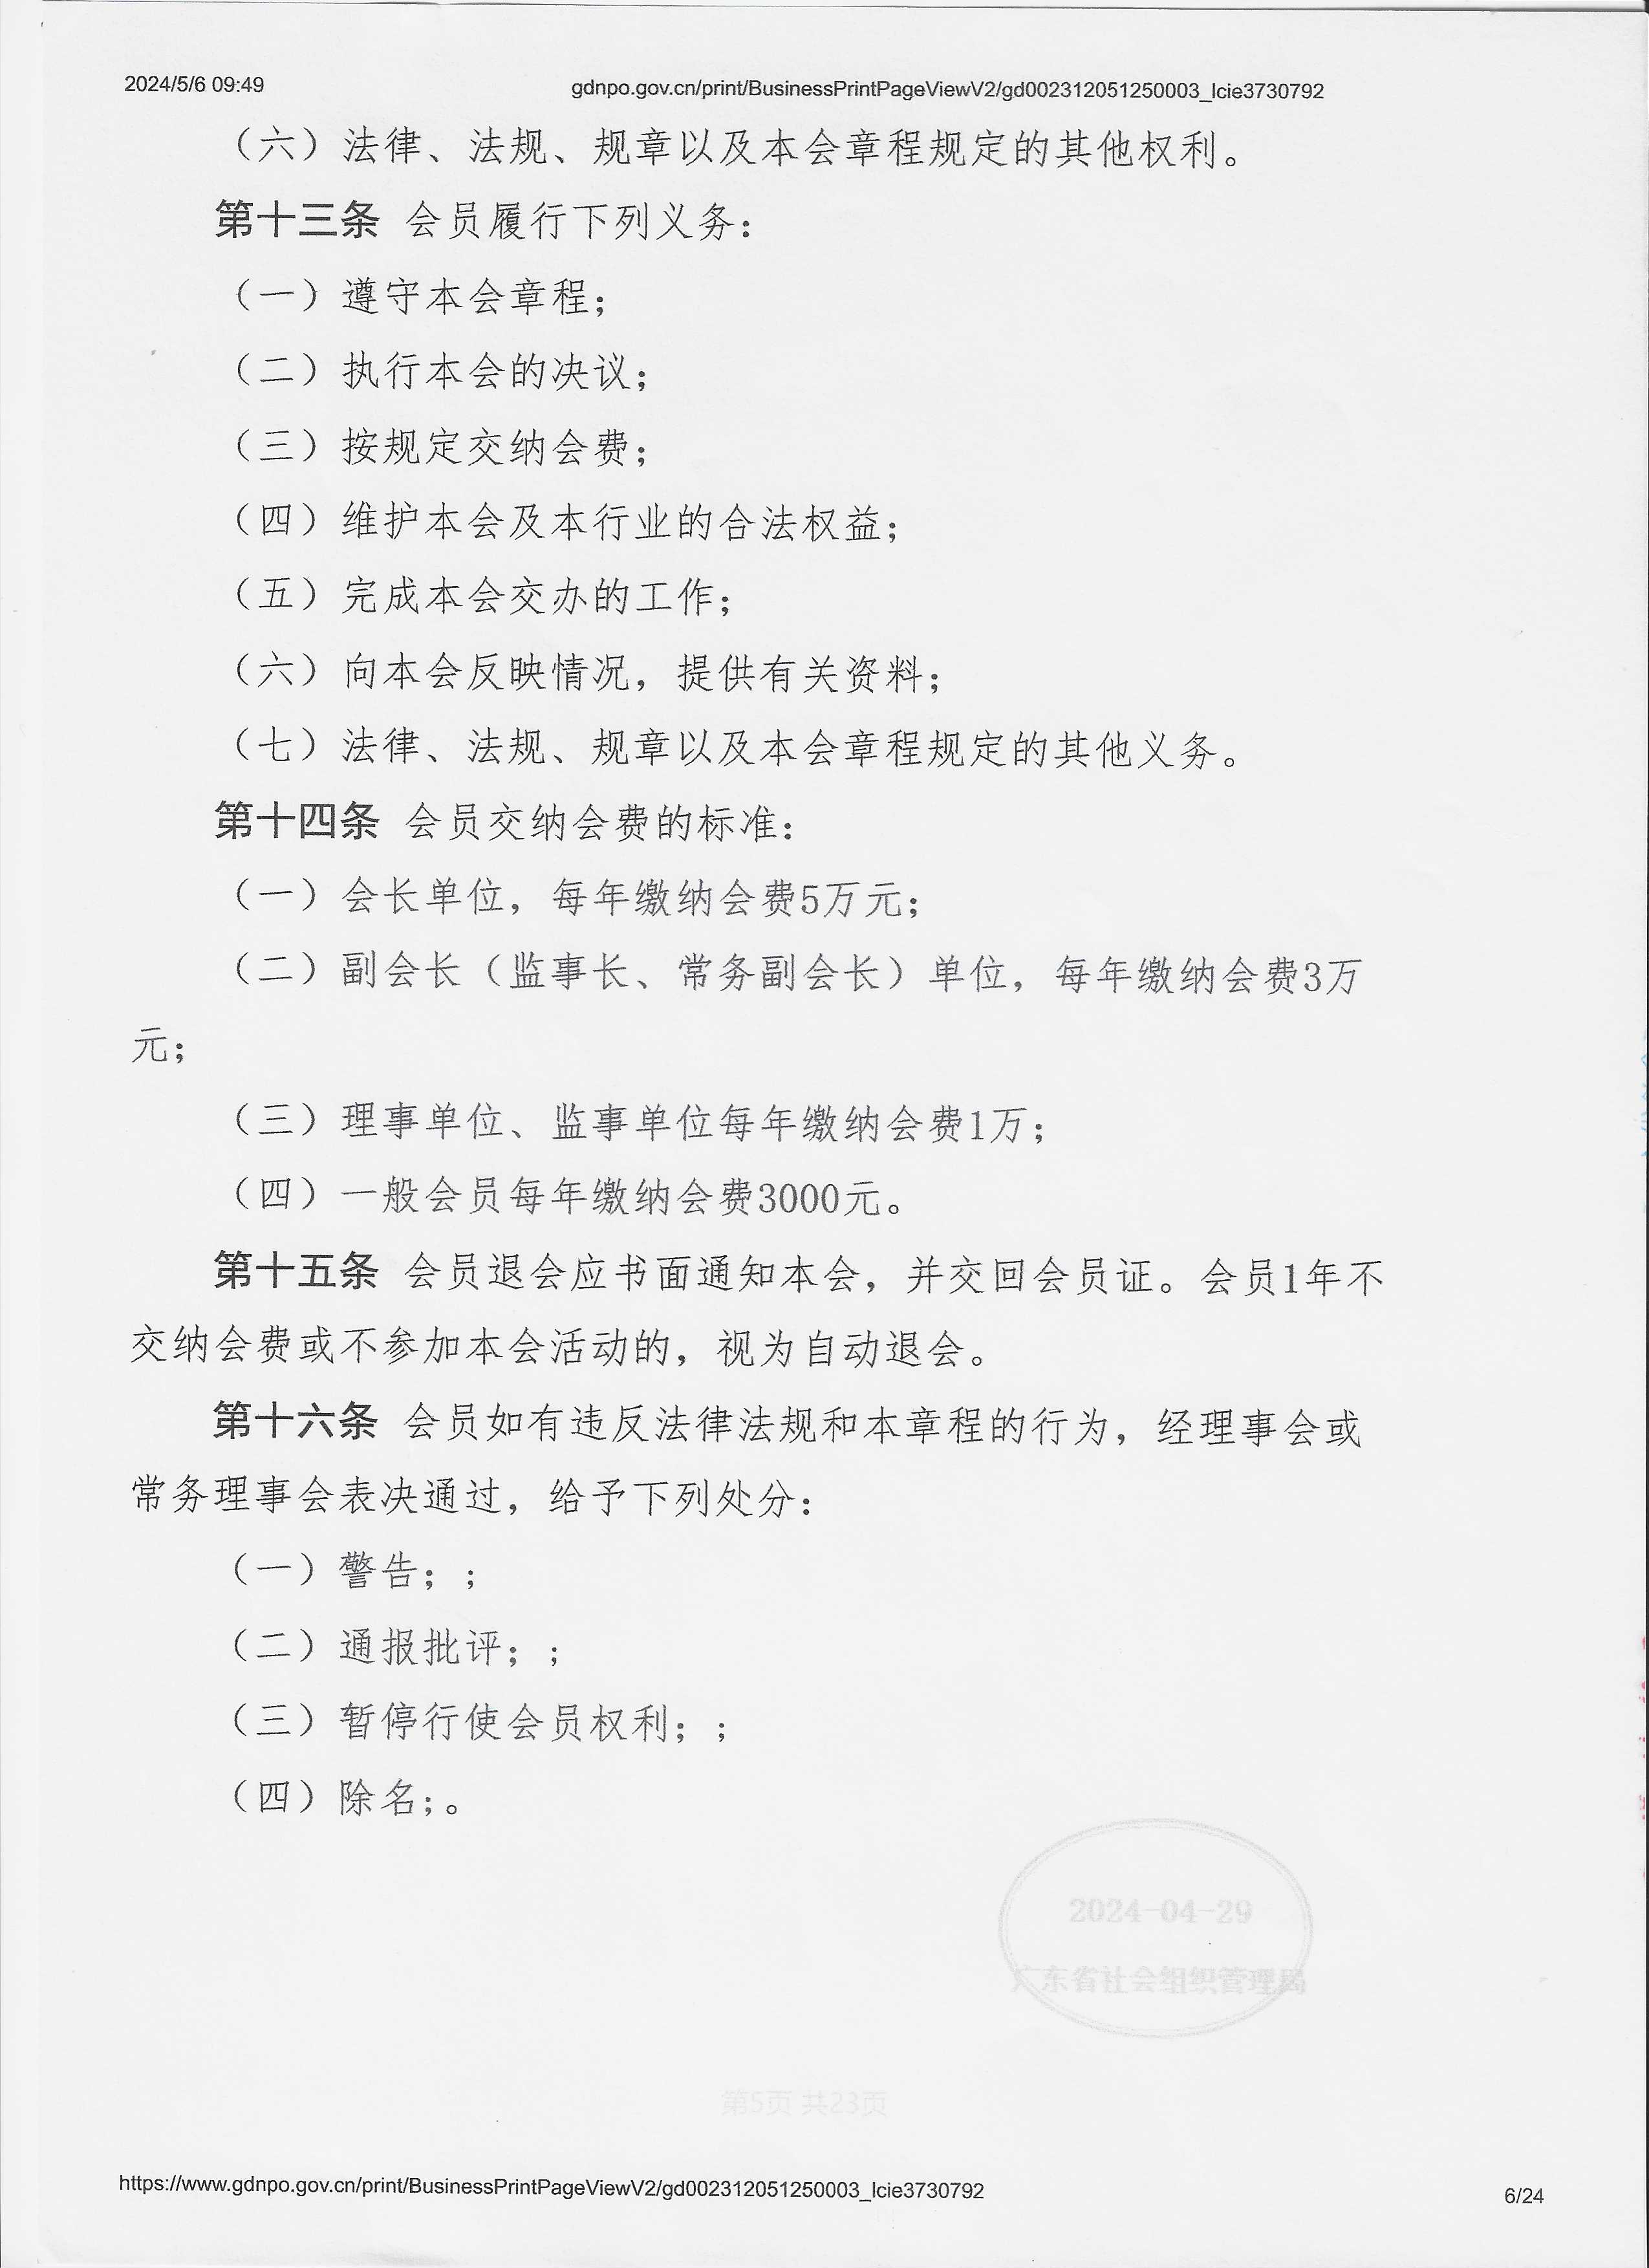 2024/5/6 09:49
gdnpo.gov.cn/print/BusinessPrintPageViewV2/gd002312051250003_lcie3730792
（六）法律、法规、规章以及本会章程规定的其他权利。
第十三条 会员履行下列义务：
（一）遵守本会章程；
（二）执行本会的决议；
（三）按规定交纳会费；
（四）维护本会及本行业的合法权益；
（五）完成本会交办的工作；
（六）向本会反映情况，提供有关资料；
（七）法律、法规、规章以及本会章程规定的其他义务。
第十四条 会员交纳会费的标准：
（一）会长单位，每年缴纳会费5万元；
（二）副会长（监事长、常务副会长）单位，每年缴纳会费3万
元；
（三）理事单位、监事单位每年缴纳会费1万；
（四）一般会员每年缴纳会费3000元。
第十五条 会员退会应书面通知本会，并交回会员证。会员1年不
交纳会费或不参加本会活动的，视为自动退会。
第十六条 会员如有违反法律法规和本章程的行为，经理事会或
常务理事会表决通过，给予下列处分：
（一）警告；；
（二）通报批评；；
（三）暂停行使会员权利；；
（四）除名；。
2024-04-29
广东省社会组织管理局
第5页 共23页
https://www.gdnpo.gov.cn/print/BusinessPrintPageViewV2/gd002312051250003_lcie3730792
6/24